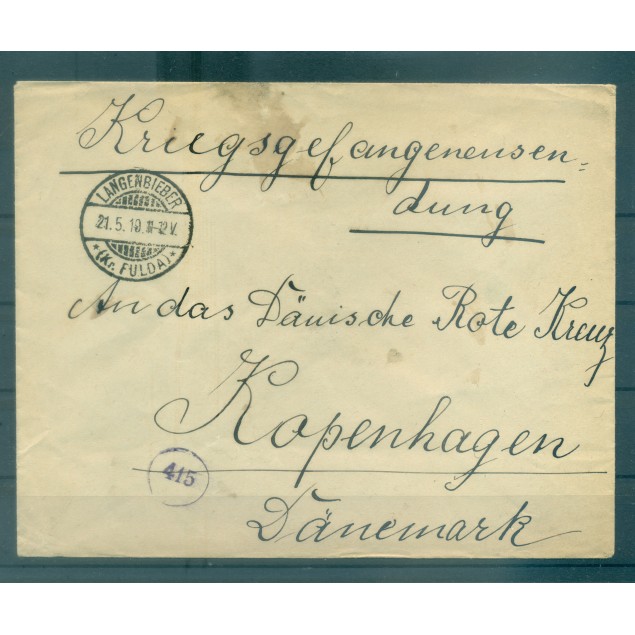 Kriegsgefangenensen-
dung
LANGENBIEBER
21.5.10.11-12V.
*(Kr. FULDA)*
An das Dänische Rote Kreuz
Kopenhagen
415
Dänemark